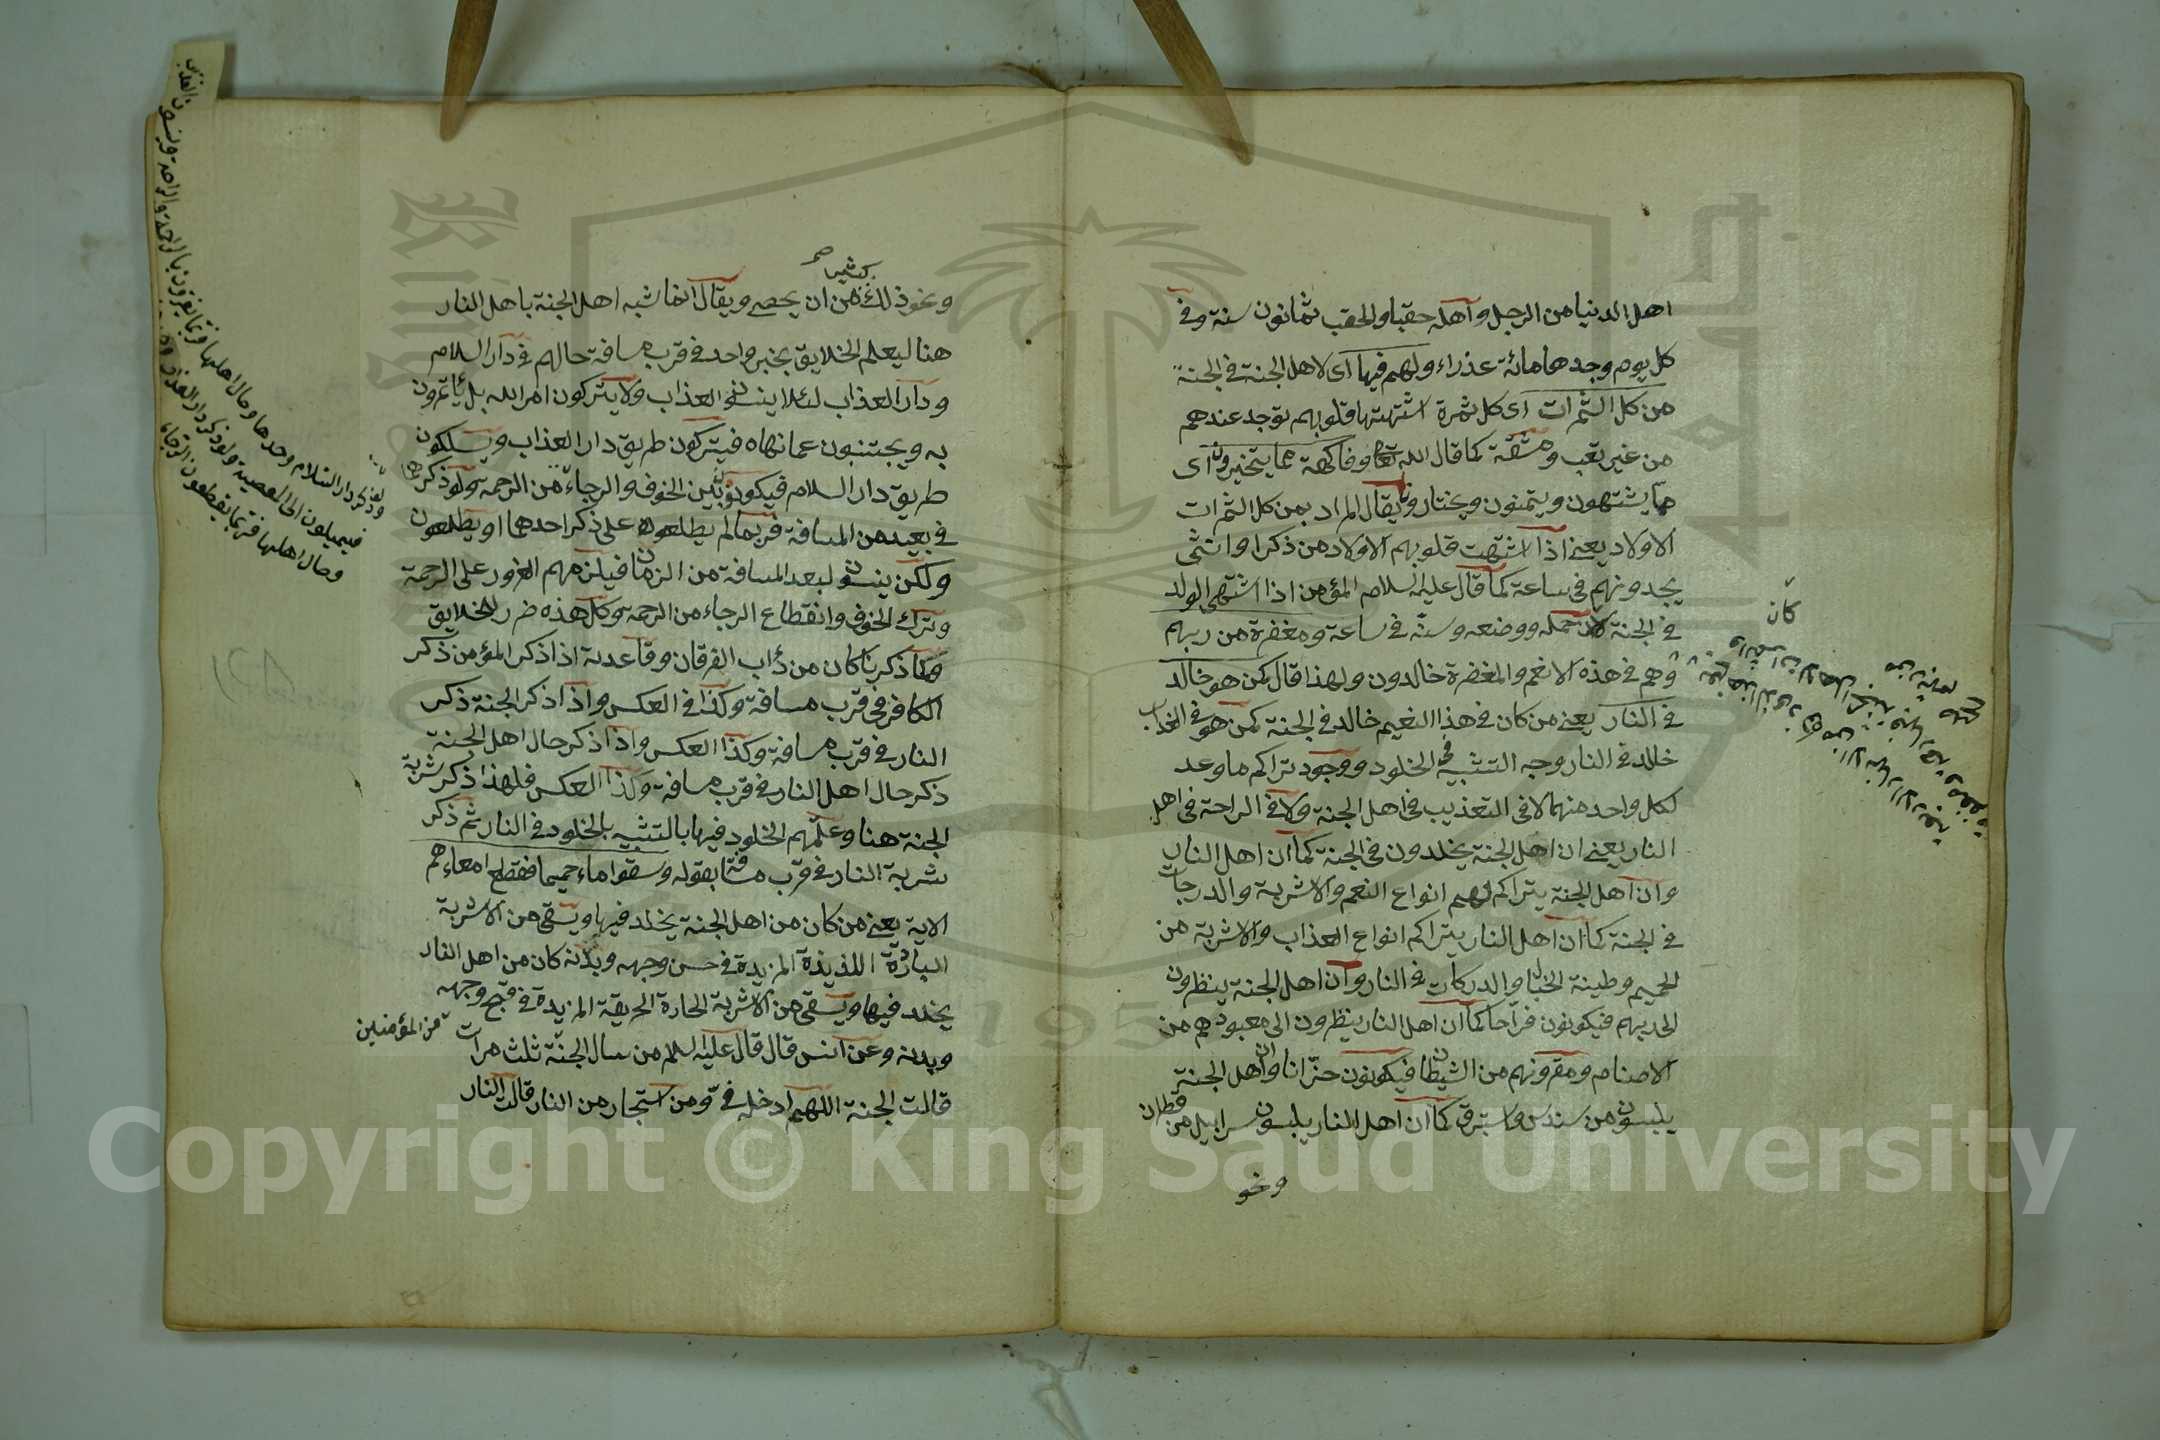 اهل الدنيا من الرجل واهله حقبا والحقب ثمانون سنة وفي
كل يوم وجدها مائة عذراء ولهم فيها اى لاهل الجنة في الجنة
من كل الثمرات اى كل ثمرة اشتهتها قلوبهم توجد عندهم
من غير تعب ومشقة كما قال الله تعا وفاكهة مما يتخيرون اى
مما يشتهون ويتمنون ويختارون ويقال المراد بمن كل الثمرات
الاولاد يعني اذا اشتهت قلوبهم الاولاد من ذكر او انثى
يجدونهم في ساعة كما قال عليه السلام المؤمن اذا اشتهى الولد
في الجنة كان حمله ووضعه وسنه في ساعة ومغفرة من ربهم
وهم في هذه الانعم والمغفرة خالدون ولهذا قال كمن هو خالد
في النار يعني من كان في هذا النعيم خالد في الجنة كمن هو في العذاب
خالد في النار وجه التشبيه في الخلود ووجود تراكم ما وعد
لكل واحد منهما لا في التعذيب في اهل الجنة ولا في الراحة في اهل
النار يعني ان اهل الجنة يخلدون في الجنة كما ان اهل النار
وان اهل الجنة يتراكم لهم انواع النعم والاشربة والدرجات
في الجنة كما ان اهل النار يتراكم انواع العذاب والاشربة من
الحميم وطينة الخبال والدركات في النار وان اهل الجنة ينظرون
الى ربهم فيكونون فراحا كما ان اهل النار ينظرون الى معبودهم من
الاصنام ومقرونهم من الشيطان فيكونون حزانا وان اهل الجنة
يلبسون من سندس واستبرق كما ان اهل النار يلبسون سرابيل من قطران
ونحو
كان
كثير صح
ونحو ذلك من ان يحصى ويقال انما شبه اهل الجنة باهل النار
هنا ليعلم الخلايق بخبر واحد في قرب مسافة حالهم في دار السلام
ودار العذاب لئلا ينسون العذاب ولا يتركون امر الله بل يأتمرون
به ويجتنبون عما نهاه فيتركون طريق دار العذاب ويسلكون
طريق دار السلام فيكونون بين الخوف والرجاء من الرحمة ولو ذكرهما
في بعيد من المسافة فربما لم يطلعون على ذكر احدهما او يطلعون
ولكن ينسون لبعد المسافة من الزمان فيلزمهم الغرور على الرحمة
وترك الخوف وانقطاع الرجاء من الرحمة وكل هذه ضر للخلايق
وكما ذكرنا كان من دأب الفرقان وقاعدته اذا ذكر المؤمن ذكر
الكافر في قرب مسافة وكذا في العكس واذا ذكر الجنة ذكر
النار في قرب مسافة وكذا العكس واذا ذكر حال اهل الجنة
ذكر حال اهل النار في قرب مسافة وكذا العكس فلهذا ذكر شربة
الجنة هنا وعلمهم الخلود فيها بالتشبيه بالخلود في النار ثم ذكر
شربة النار في قرب مسافة بقوله وسقوا ماء حميما فقطع امعاءهم
الاية يعني من كان من اهل الجنة يخلد فيها ويسقى من الاشربة
الباردة اللذيذة المزيدة في حسن وجهه وبدنه كان من اهل النار
يخلد فيها ويسقى من الاشربة الحارة الحريقة المزيدة في قبح وجهه
وبدنه وعن انس قال قال عليه السلم من سال الجنة ثلث مرات
من المؤمنين
قالت الجنة اللهم ادخله في ومن استجار من النار قالت النار
ولو ذكر دار السلام وحدها وحال اهلها فربما يغرون بالراحة وينسون العذاب
فيميلون الى المعصية ولو ذكر دار العذاب
وحال اهلها فربما يقطعون الرجاء
Copyright © King Saud University
1957